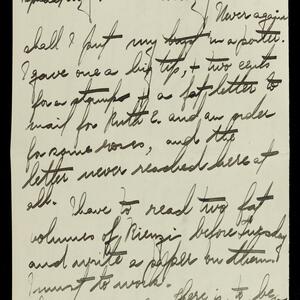 Never again
shall I put my trust in a porter.
I gave one a big tip, + two cents
for a stamp + a fat letter to
mail for Ruth E. and an order
for some roses, and the
letter never reached here at
all. I have to read two fat
volumes of Rienzi before Tuesday
and write a paper on them!
I must to work.
there is to be